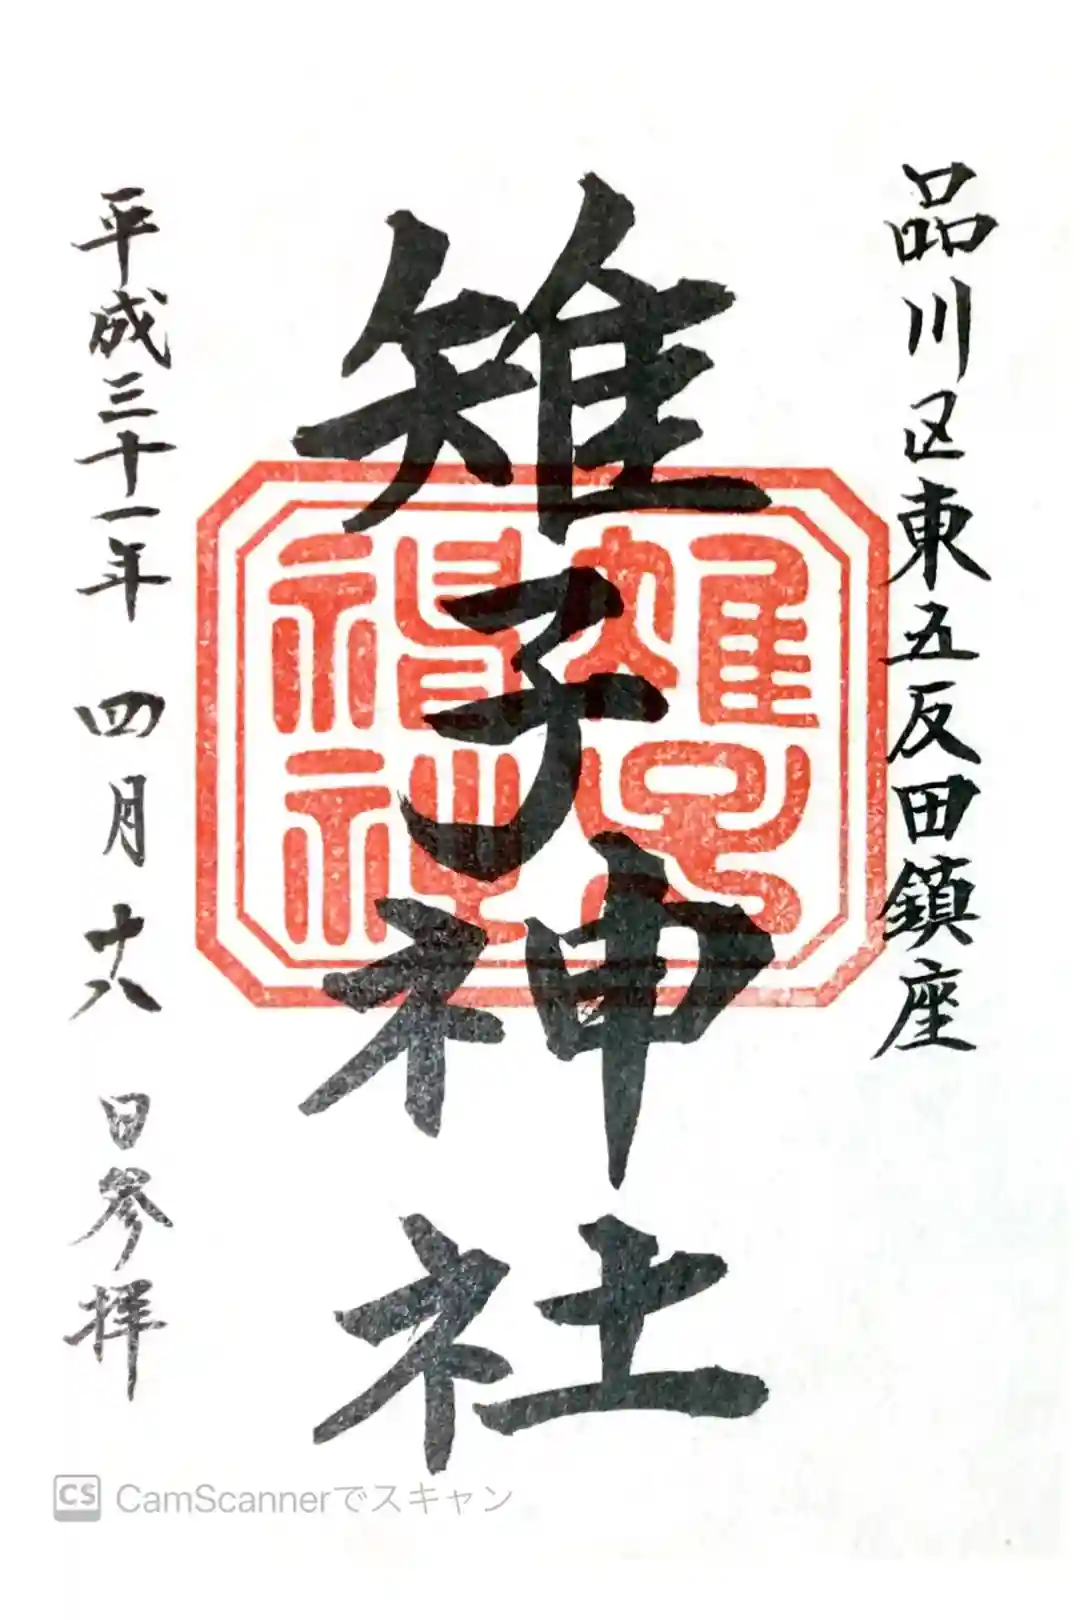 品川区東五反田鎮座
雉子神社
雉子神社
平成三十一年 四月 十八 日参拝
CS CamScannerでスキャン